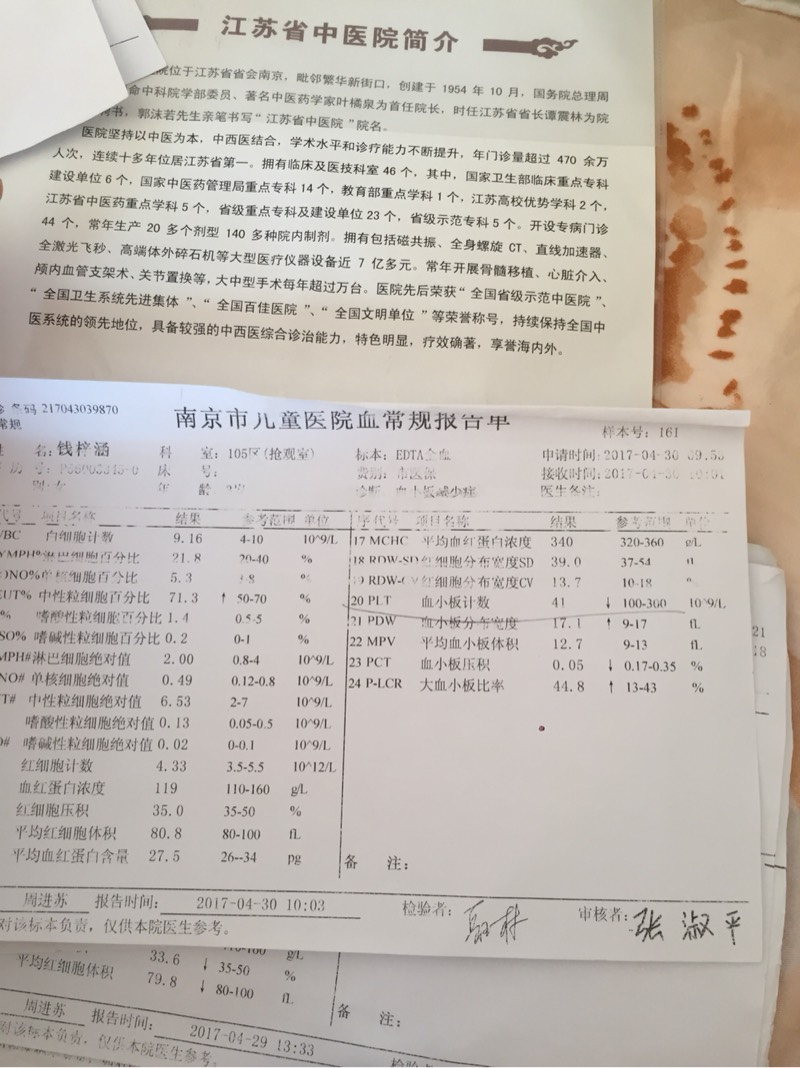 江苏省中医院简介
院位于江苏省省会南京，毗邻繁华新街口，创建于 1954 年 10 月，国务院总理周
命中科院学部委员、著名中医药学家叶橘泉为首任院长，时任江苏省省长谭震林为院
书，郭沫若先生亲笔书写“江苏省中医院”院名。
医院坚持以中医为本，中西医结合，学术水平和诊疗能力不断提升，年门诊量超过 470 余万
人次，连续十多年位居江苏省第一。拥有临床及医技科室 46 个，其中，国家卫生部临床重点专科
建设单位 6 个，国家中医药管理局重点专科 14 个，教育部重点学科 1 个，江苏高校优势学科 2 个，
江苏省中医药重点学科 5 个，省级重点专科及建设单位 23 个，省级示范专科 5 个。开设专病门诊
44 个，常年生产 20 多个剂型 140 多种院内制剂。拥有包括磁共振、全身螺旋 CT、直线加速器、
全激光飞秒、高端体外碎石机等大型医疗仪器设备近 7 亿多元。常年开展骨髓移植、心脏介入、
颅内血管支架术、关节置换等，大中型手术每年超过万台。医院先后荣获“全国省级示范中医院”、
“全国卫生系统先进集体”、“全国百佳医院”、“全国文明单位”等荣誉称号，持续保持全国中
医系统的领先地位，具备较强的中西医综合诊治能力，特色明显，疗效确著，享誉海内外。
码 217043039870
南京市儿童医院血常规报告单
样本号：161
常规
名：钱梓涵 科 室：105区(抢观室) 标本：EDTA全血 申请时间：2017-04-30
床 号： 费别：市医保 接收时间：2017-04-30
别：女 年 龄 诊断：血小板减少症 医生备注：
代号 项目名称 结果 参考范围 单位 序代号 项目名称 结果 参考范围 单位
WBC 白细胞计数 9.16 4-10 10^9/L 17 MCHC 平均血红蛋白浓度 340 320-360 g/L
YMPH%淋巴细胞百分比 21.8 20-40 % 18 RDW-SD红细胞分布宽度SD 39.0 37-54 fL
ONO%单核细胞百分比 5.3 3-8 % RDW-CV红细胞分布宽度CV 13.7 10-18 %
EUT% 中性粒细胞百分比 71.3 ↑ 50-70 % 20 PLT 血小板计数 41 ↓ 100-300 10^9/L
% 嗜酸性粒细胞百分比 1.4 0.5-5 % 21 PDW 血小板分布宽度 17.1 ↑ 9-17 fL
SO% 嗜碱性粒细胞百分比 0.2 0-1 % 22 MPV 平均血小板体积 12.7 9-13 fL
MPH#淋巴细胞绝对值 2.00 0.8-4 10^9/L 23 PCT 血小板压积 0.05 ↓ 0.17-0.35 %
NO# 单核细胞绝对值 0.49 0.12-0.8 10^9/L 24 P-LCR 大血小板比率 44.8 ↑ 13-43 %
T# 中性粒细胞绝对值 6.53 2-7 10^9/L
嗜酸性粒细胞绝对值 0.13 0.05-0.5 10^9/L
O# 嗜碱性粒细胞绝对值 0.02 0-0.1 10^9/L
红细胞计数 4.33 3.5-5.5 10^12/L
血红蛋白浓度 119 110-160 g/L
红细胞压积 35.0 35-50 %
平均红细胞体积 80.8 80-100 fL
平均血红蛋白含量 27.5 26--34 pg 备 注：
周进苏 报告时间： 2017-04-30 10:03 检验者： 审核者：张淑平
对该标本负责，仅供本院医生参考。
33.6 ↓ 35-50 %
平均红细胞体积 79.8 ↓ 80-100 fL
备 注：
周进苏 报告时间： 2017-04-29 13:33
对该标本负责，仅供本院医生参考。